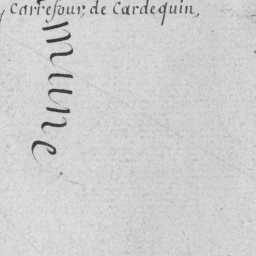 Carrefour, de Cardequin,
mune